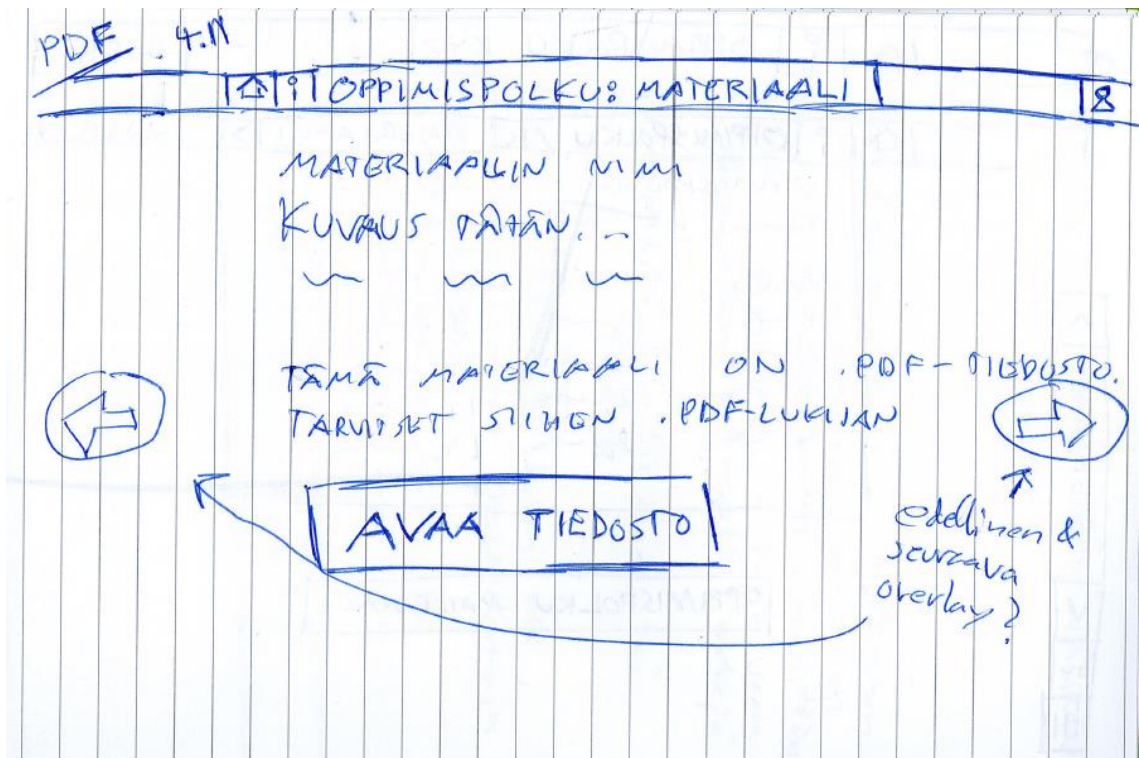 PDF 4.11
OPPIMISPOLKU: MATERIAALI
MATERIAALIN NIMI
KUVAUS TÄHÄN...
TÄMÄ MATERIAALI ON .PDF-TIEDOSTO.
TARVITSET SIIHEN .PDF-LUKIJAN
AVAA TIEDOSTO
edellinen &
seuraava
overlay?